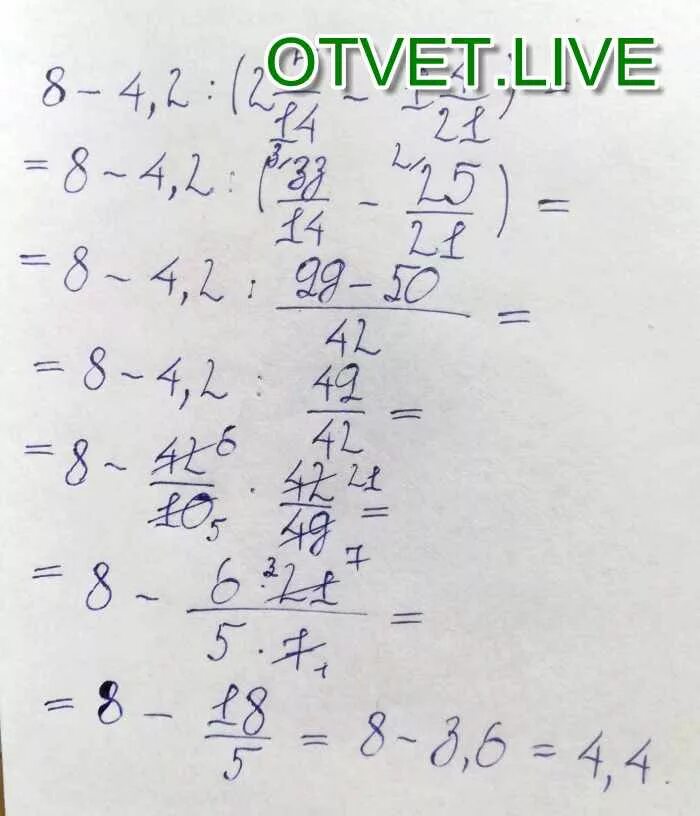 OTVET.LIVE
8 - 4,2 : (2 5/14 - 1 4/21) =
= 8 - 4,2 : (³33/14 - ²25/21) =
= 8 - 4,2 : (99 - 50)/42 =
= 8 - 4,2 : 49/42 =
= 8 - 42⁶/10₅ · 42²¹/49₇ =
= 8 - (6 · ³21)/(5 · 7₁) =
= 8 - 18/5 = 8 - 3,6 = 4,4.